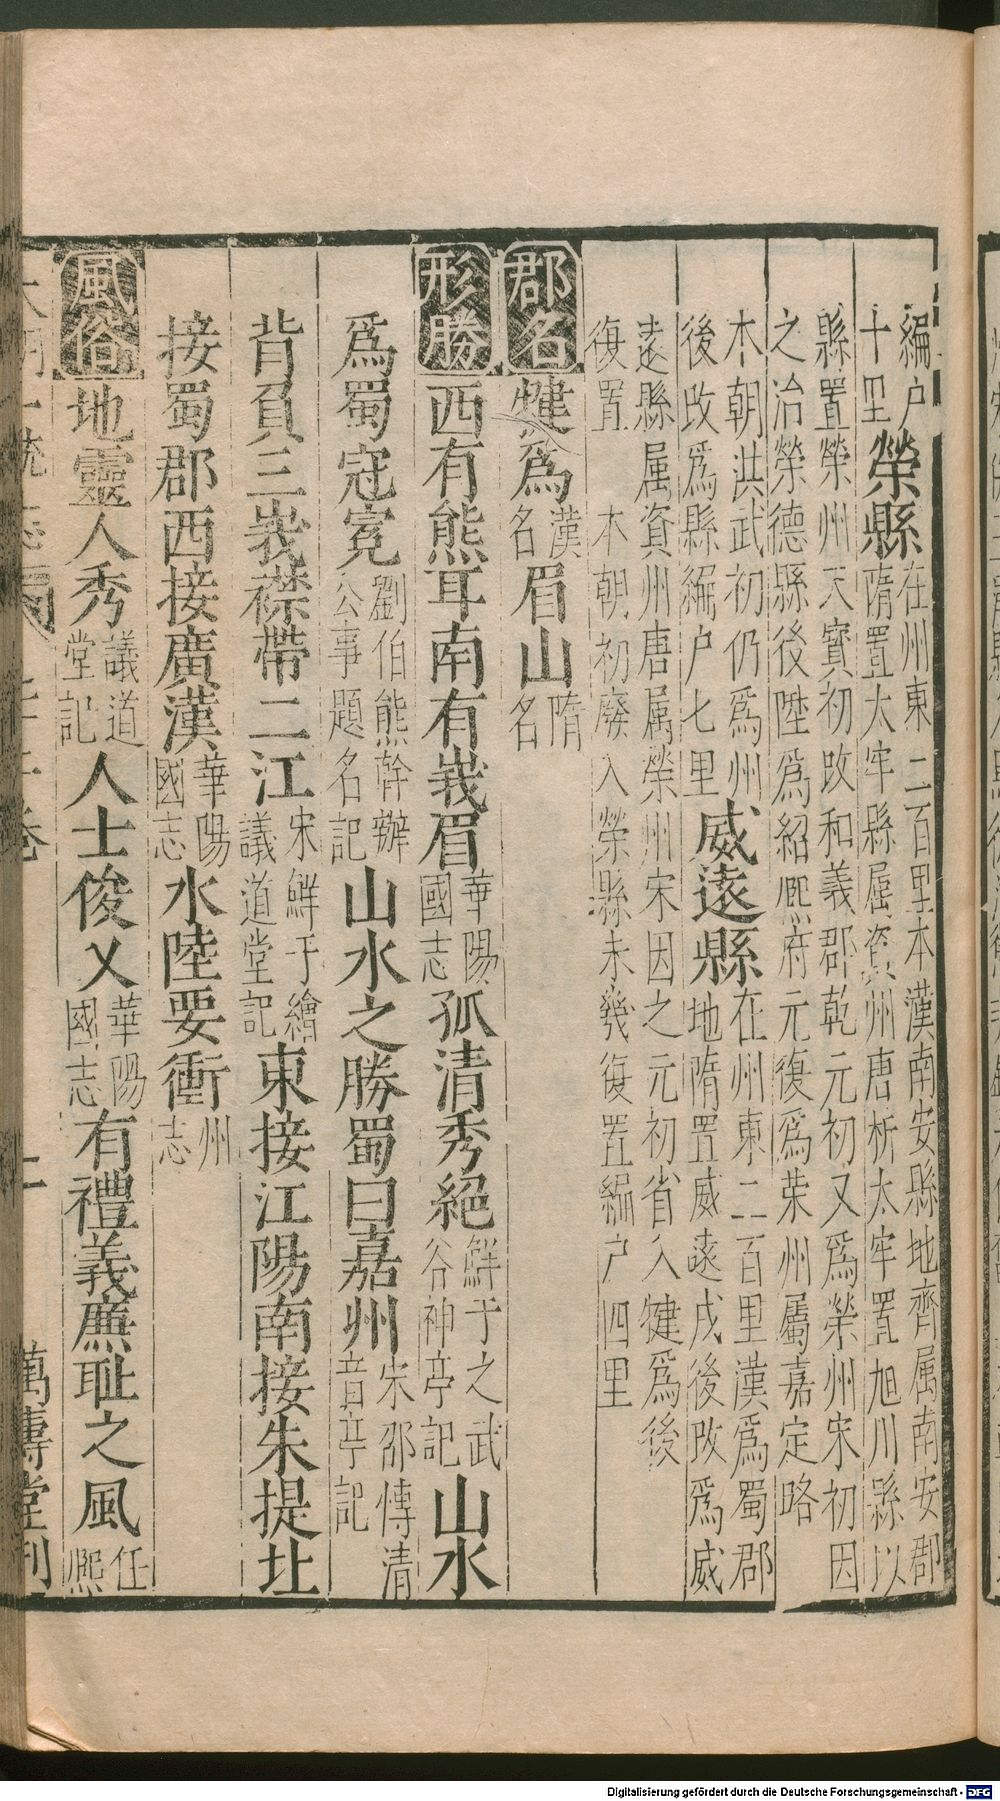 編户十里榮縣在州東二百里本漢南安縣地齊属南安郡隋置太牢縣屬資州唐析太牢置旭川縣以
縣置榮州天寳初改和義郡乾元初又爲榮州宋初因之治榮德縣後陞爲紹熈府元復爲荣州屬嘉定路
本朝洪武初仍爲州後改爲縣編户七里威遠縣在州東二百里漢爲蜀郡地隋置威遠戍後改爲威
遠縣属資州唐属榮州宋因之元初省入犍爲後復置本朝初廢入榮縣未幾復置編户四里
郡名犍爲漢名眉山隋名
形勝西有熊耳南有峩眉華陽國志孤清秀絕鮮于之武谷神亭記山水
爲蜀冠冕劉伯熊幹辦公事題名記山水之勝蜀曰嘉州宋邵慱清音亭記
背負三峩襟帶二江宋鮮于繪議道堂記東接江陽南接朱提北
接蜀郡西接廣漢華陽國志水陸要衝州志
風俗地靈人秀議道堂記人士俊乂華陽國志有禮義廉耻之風任熈
大明一統志 卷 萬壽堂刊
Digitalisierung gefördert durch die Deutsche Forschungsgemeinschaft - DFG